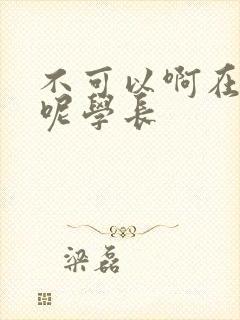 不可以啊在
呢学长
梁磊